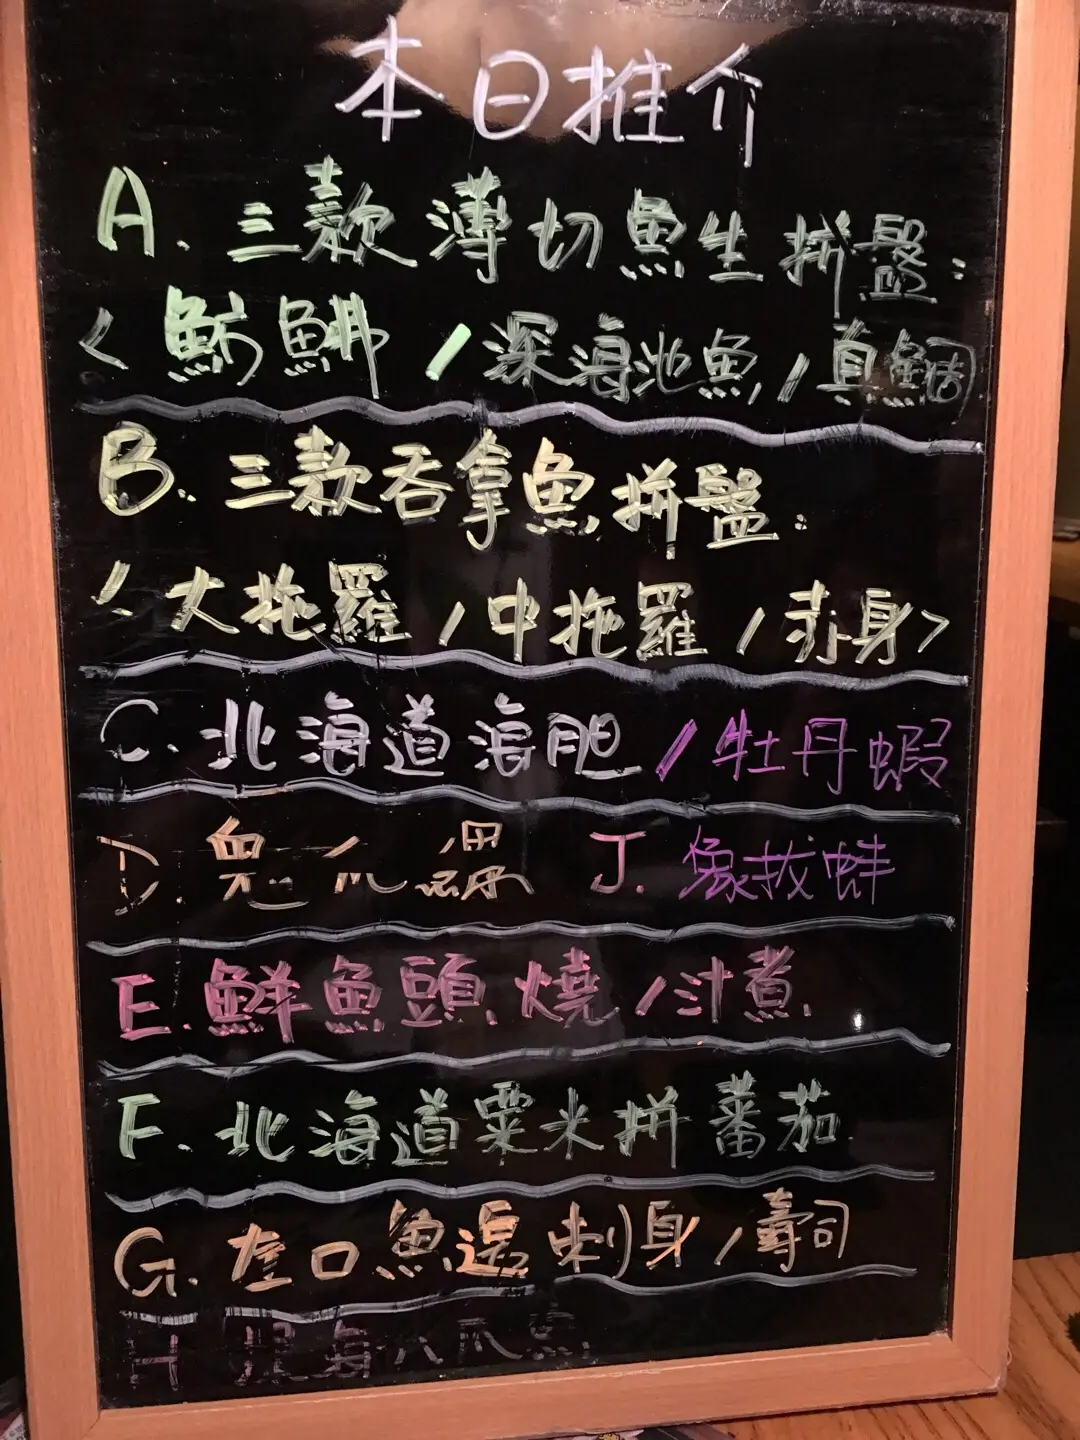 本日推介
A. 三款薄切魚生拼盤:
< 魴鮄 / 深海池魚 / 真鯛
B. 三款吞拿魚拼盤:
大拖羅 / 中拖羅 / 赤身>
C. 北海道海胆 / 牡丹蝦
D J. 象拔蚌
E. 鮮魚頭 燒 / 汁煮
F. 北海道粟米拼蕃茄
G. 左口魚邊刺身 / 壽司
H 八爪魚